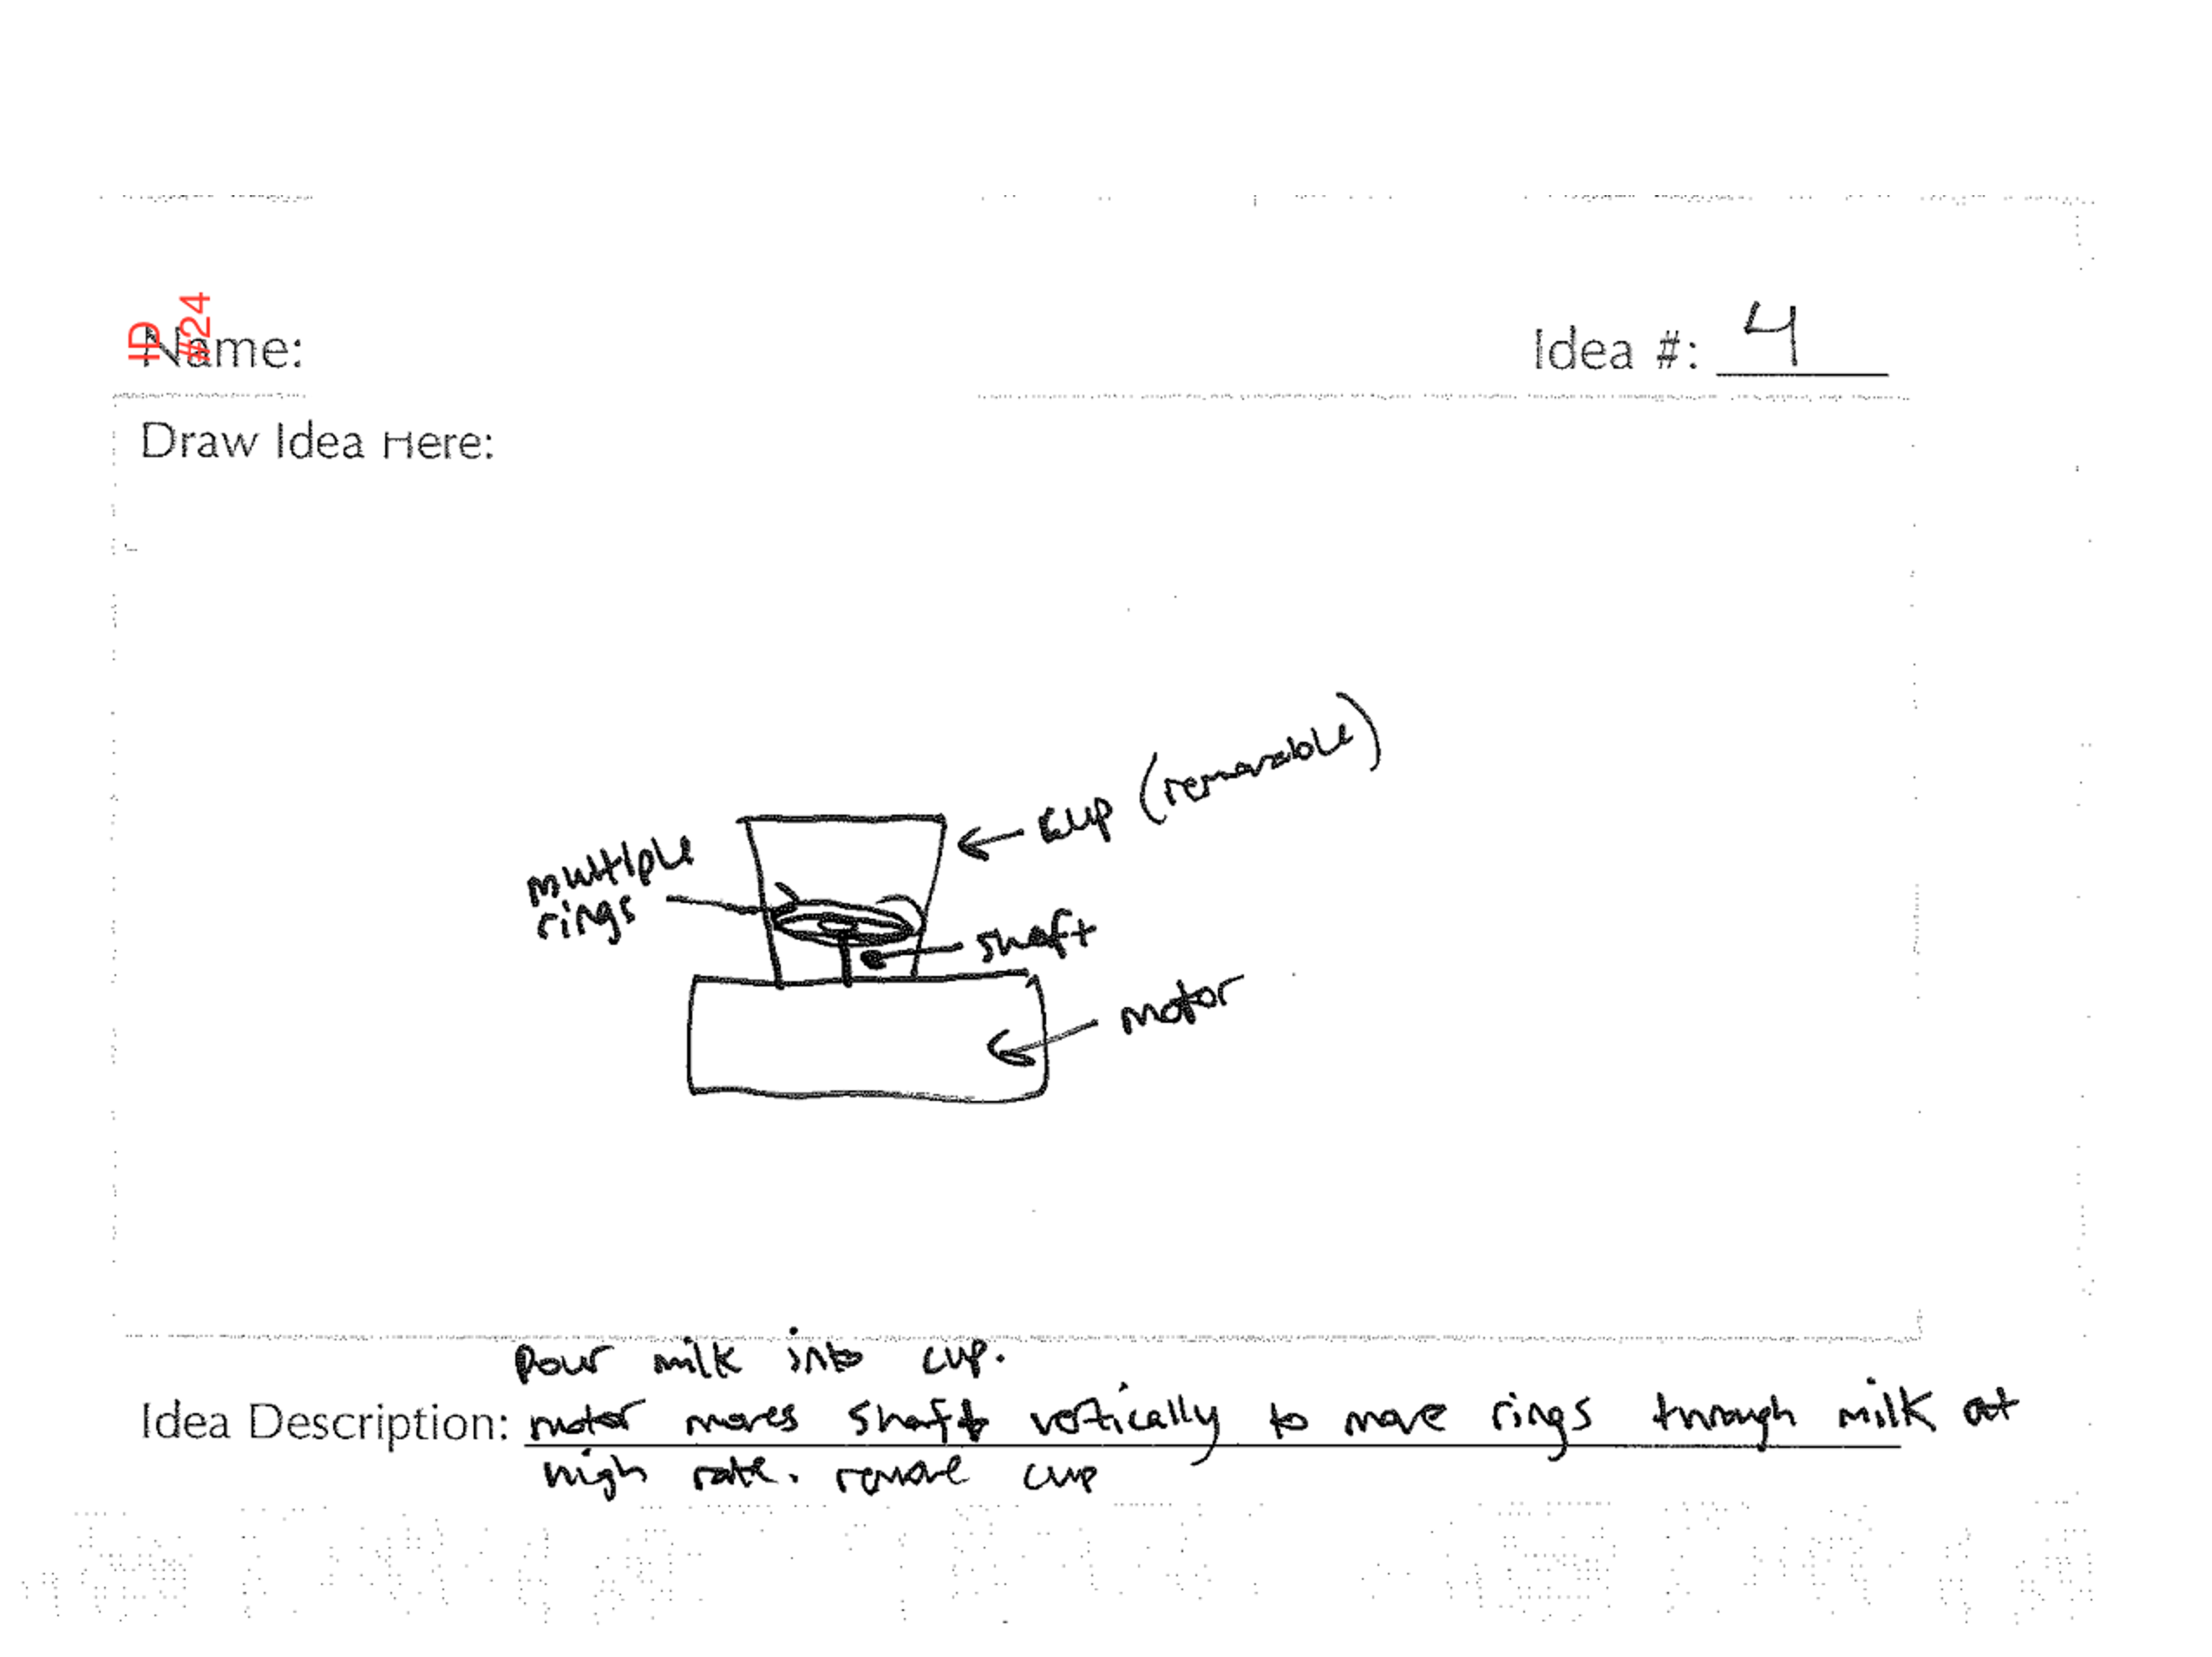 ID
#24
Name:
Idea #: 4
Draw Idea Here:
cup (removable)
multiple
rings
shaft
motor
pour milk into cup.
Idea Description: motor moves shaft vertically to move rings through milk at
high rate. remove cup